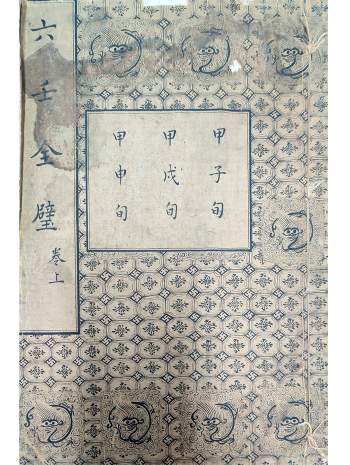 六壬全璧
卷上
甲子旬
甲戌旬
甲申旬